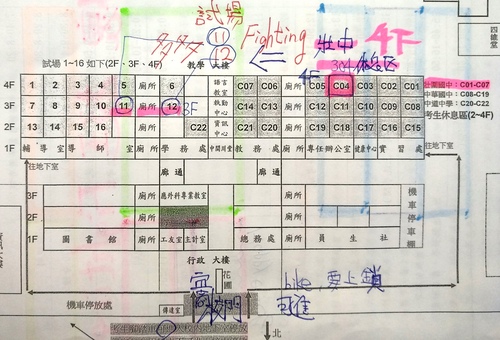 試場
多多 11 Fighting 壯中 4F
12
四維堂
試場 1~16 如下(2F、3F、4F) 教學 大樓
4F 1 2 3 4 5 廁所 6 語言教室 C07 C06 廁所 C05 C04 C03 C02 C01 壯圍國中：C01-C07
3F 7 8 9 10 11 廁所 12 3F 執勤中心 C14 C13 廁所 C12 C11 C10 C09 C08 中華國中：C08-C19
2F 13 14 15 16 廁所 C22 資訊中心 C21 C20 廁所 C19 C18 C17 C16 C15 中道中學：C20-C22
考生休息區(2~4F)
1F 輔導室 導師室 廁所 學務處 中間川堂 教務處 廁所 專任辦公室 健康中心 實習處
往地下室 廊通 廊通 往地下室
3F 廁所 應外科專業教室 廁所
2F 廁所 廁所
1F 圖書館 廁所 工友室 主計室 總務處 廁所 員生社
機車停車棚
行政 大樓
花圃
bike, 要上鎖
機車停放處 傳達室 校門
北